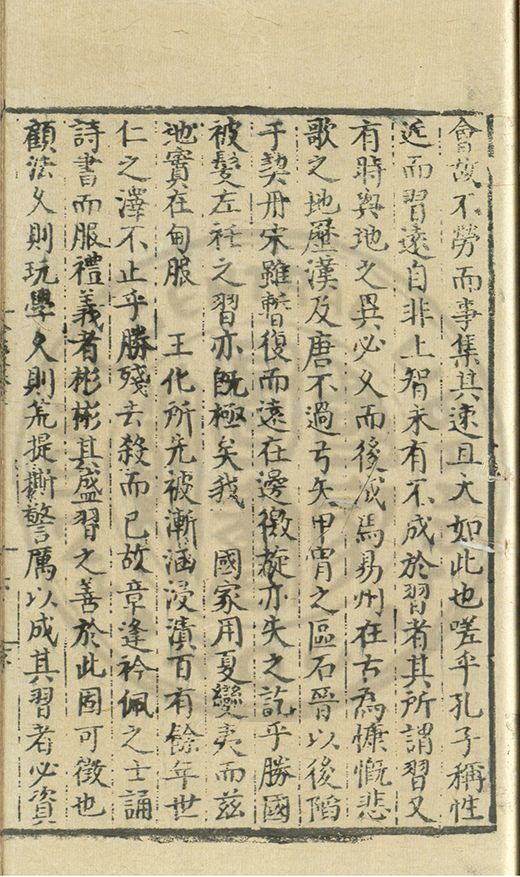 會故不勞而事集其速且大如此也嗟乎孔子稱性
近而習遠自非上智未有不成於習者其所謂習又
有時與地之異必久而後成焉易州在古為慷慨悲
歌之地歷漢及唐不過弓矢甲冑之區石晉以後陷
于契丹宋雖暫復而遠在邊徼旋亦失之訖乎勝國
被髮左衽之習亦既極矣我　國家用夏變夷而茲
地實在甸服　王化所先被漸涵浸漬百有餘年世
仁之澤不止乎勝殘去殺而已故章逢衿佩之士誦
詩書而服禮義者彬彬其盛習之善於此固可徵也
顧法久則玩學久則荒提撕警厲以成其習者必資